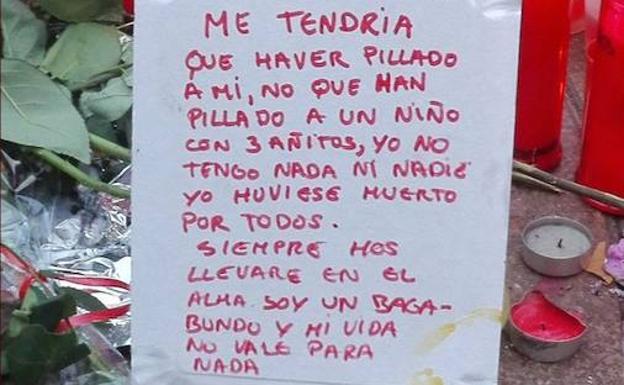 ME TENDRIA
QUE HAVER PILLADO
A MI, NO QUE HAN
PILLADO A UN NIÑO
CON 3 AÑITOS, YO NO
TENGO NADA NI NADIE
YO HUVIESE MUERTO
POR TODOS.
SIEMPRE HOS
LLEVARE EN EL
ALMA SOY UN BAGA-
BUNDO Y MI VIDA
NO VALE PARA
NADA